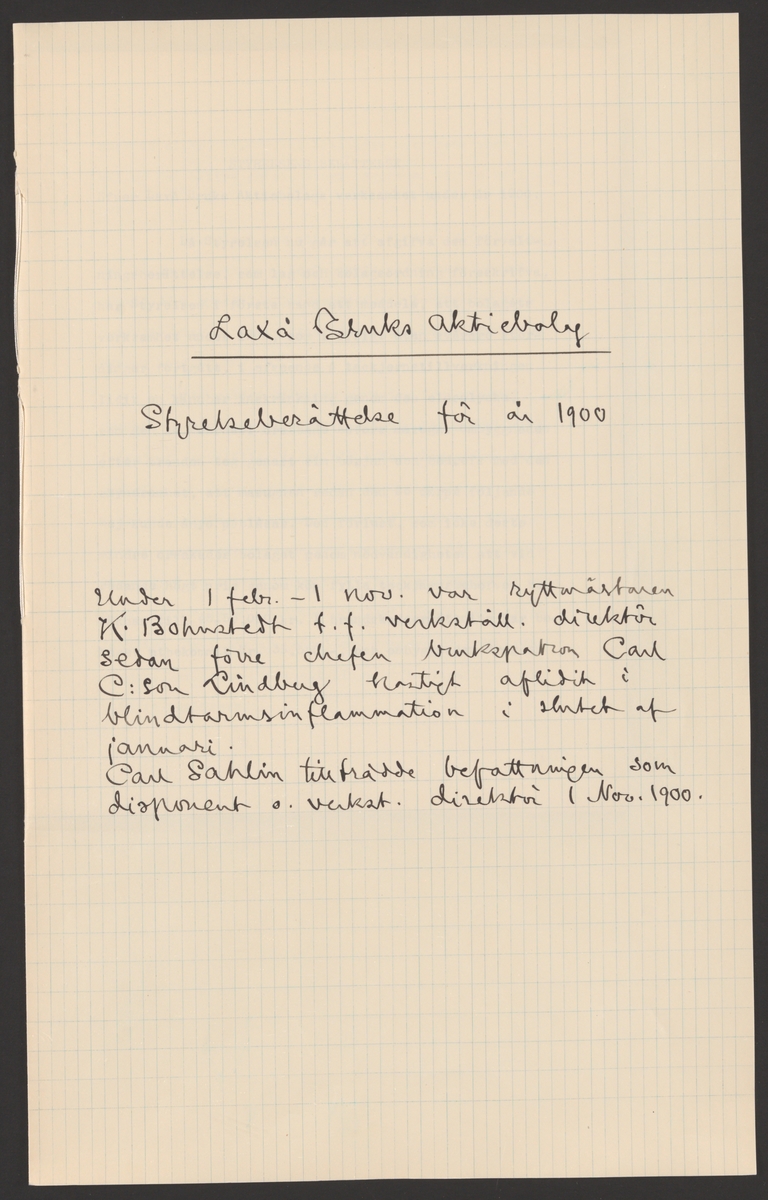 Laxå Bruks Aktiebolag
Styrelseberättelse för år 1900
Under 1 febr. – 1 nov. var ryttmästaren
K. Bohnstedt t.f. verkställ. direktör
sedan förre chefen brukspatron Carl
C:son Lindberg hastigt aflidit i
blindtarmsinflammation i slutet af
januari.
Carl Sahlin tillträdde befattningen som
disponent o. verkst. direktör 1 Nov. 1900.